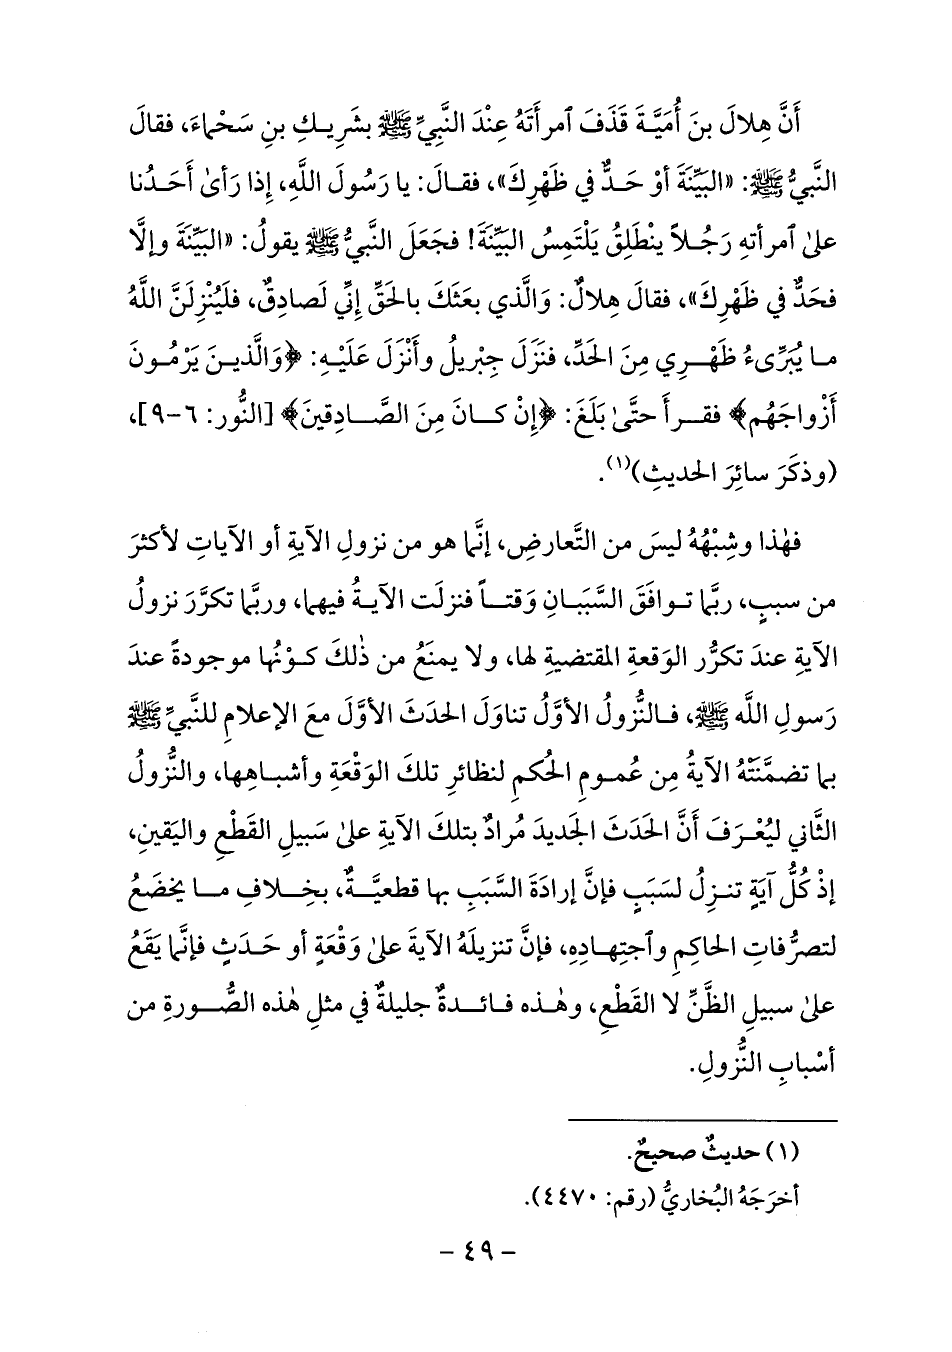 أنَّ هِلالَ بنَ أُمَيَّةَ قَذَفَ ٱمرأَتَهُ عِنْدَ النَّبِيِّ ﷺ بشَرِيـكِ بنِ سَحْماءَ، فقالَ
النَّبِيُّ ﷺ: «البَيِّنَةَ أوْ حَـدٌّ في ظَهْرِكَ»، فقـالَ: يا رَسُولَ اللَّهِ، إذا رَأىٰ أَحَـدُنا
علىٰ ٱمرأتهِ رَجُـلاً ينْطَلِقُ يَلْتَمِسُ البَيِّنَةَ! فجَعَلَ النَّبيُّ ﷺ يقولُ: «البَيِّنَةَ وإلَّا
فحَدٌّ في ظَهْرِكَ»، فقالَ هِلالٌ: وَالَّذي بعَثَكَ بالحَقِّ إنِّي لَصادِقٌ، فلَيُنْزِلَنَّ اللَّهُ
ما يُبَرِّىءُ ظَهْـرِي مِنَ الحَدِّ، فنَزَلَ جِبْريلُ وأَنْزَلَ عَلَيْـهِ: ﴿وَالَّذيـنَ يَرْمُـونَ
أَزْواجَهُم﴾ فقـرأَ حتَّىٰ بَلَغَ: ﴿إنْ كـانَ مِنَ الصَّـادِقينَ﴾ [النُّور: ٦-٩]،
(وذكَرَ سائِرَ الحديثِ)(١).
فهٰذا وشِبْهُهُ ليسَ من التَّعارضِ، إنَّما هو من نزولِ الآيةِ أو الآياتِ لأكثرَ
من سببٍ، ربَّما تـوافَقَ السَّببَـانِ وَقتـاً فنزلَت الآيـةُ فيهِما، وربَّما تكرَّرَ نزولُ
الآيةِ عندَ تكرُّر الوَقعةِ المقتضيةِ لها، ولا يمنَعُ من ذٰلكَ كـوْنُها موجودةً عندَ
رَسولِ اللَّه ﷺ، فـالنُّزولُ الأوَّلُ تناوَلَ الحدَثَ الأوَّلَ معَ الإعلامِ للنَّبيِّ ﷺ
بما تضمَّنَتْهُ الآيةُ مِن عُمـومِ الحُكمِ لنظائرِ تلكَ الوَقْعَةِ وأشبـاهِها، والنُّزولُ
الثَّاني ليُعْـرَفَ أنَّ الحَدَثَ الجديدَ مُرادٌ بتلكَ الآيةِ علىٰ سَبيلِ القَطْعِ واليَقينِ،
إذْ كُلُّ آيَةٍ تنـزِلُ لسَبَبٍ فإنَّ إرادَةَ السَّبَبِ بها قطعيَّـةٌ، بخِـلافِ مـا يخضَعُ
لتصرُّفاتِ الحاكِمِ وٱجتِهـادِهِ، فإنَّ تنزيلَهُ الآيةَ علىٰ وَقْعَةٍ أو حَـدَثٍ فإنَّما يَقَعُ
علىٰ سبيلِ الظَّنِّ لا القَطْعِ، وهٰـذه فـائـدةٌ جليلةٌ في مثلِ هٰذه الصُّـورةِ من
أسْبابِ النُّزولِ.
(١) حديثٌ صحيحٌ.
أخرَجَهُ البُخاريُّ (رقم: ٤٤٧٠).
- ٤٩ -